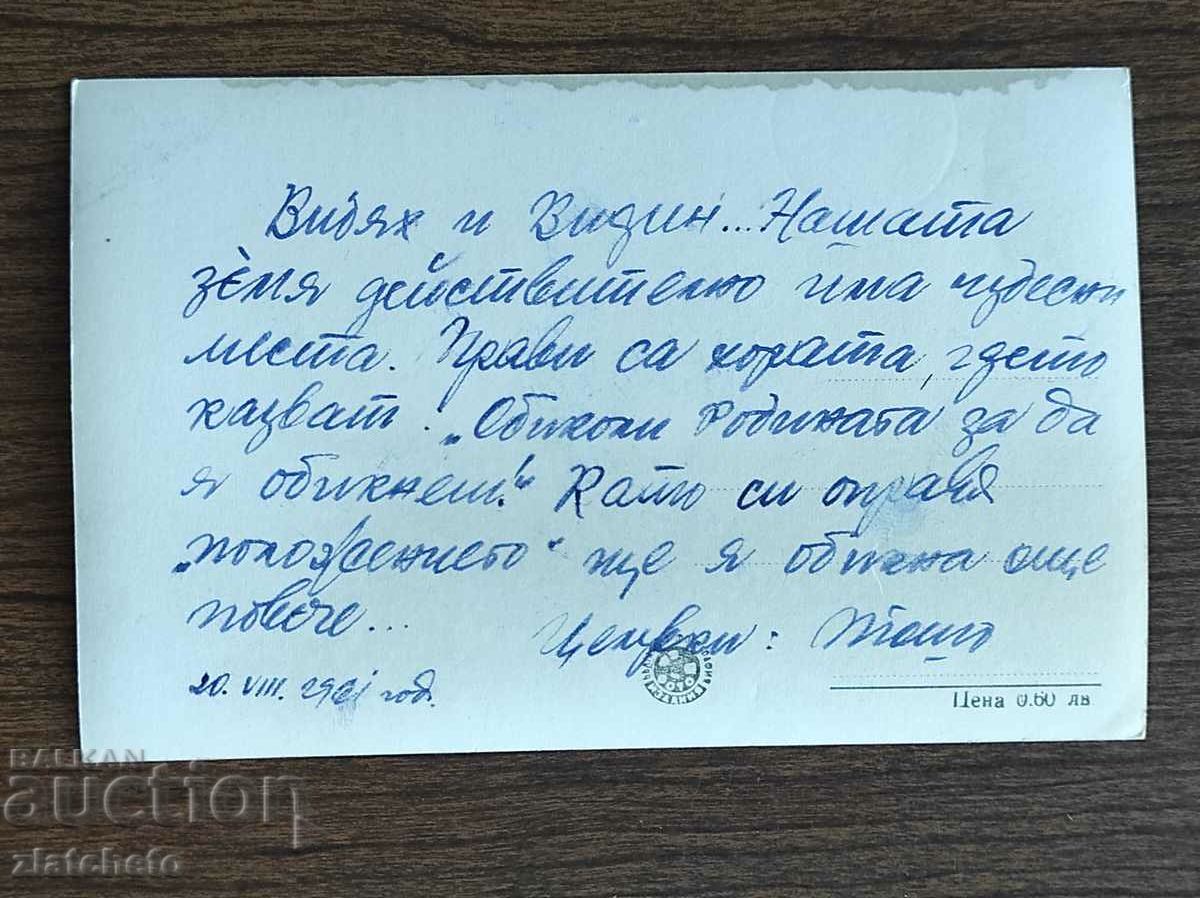 Видях и Видин... Нашата
земя действително има чудесни
места. Прави са хората, гдето
казват: „Обиколи Родината за да
я обикнеш!“ Като си оправя
„положението“ ще я обикна още
повече...
Целувки: Тошо
20. VIII. 1961 год.
Цена 0.60 лв
BALKAN
auction
zlatcheto